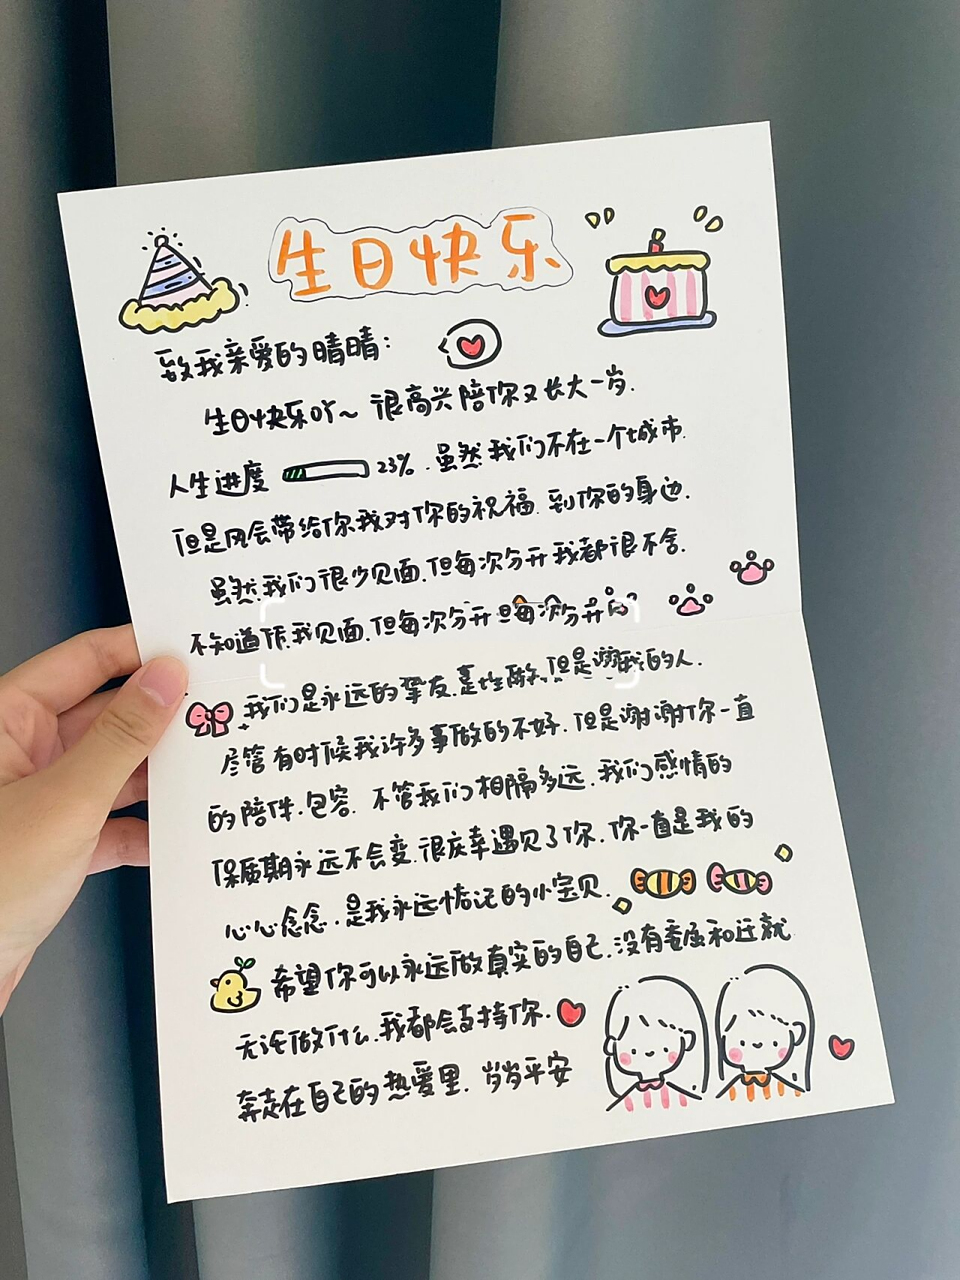 生日快乐
致我亲爱的晴晴：
生日快乐吖～ 很高兴陪你又长大一岁.
人生进度 23%. 虽然我们不在一个城市.
但是风会带给你我对你的祝福. 到你的身边.
虽然我们很少见面.但每次分开我都很不舍.
不知道 我见面.但每次分开但每次分开
我们是永远的挚友. 但是 我的人.
尽管有时候我许多事做的不好.但是谢谢你一直
的陪伴.包容. 不管我们相隔多远.我们感情的
保质期永远不会变.很庆幸遇见了你.你一直是我的
心心念念.是我永远惦记的小宝贝.
希望你可以永远做真实的自己.没有委屈和迁就
无论做什么.我都会支持你.
奔走在自己的热爱里. 岁岁平安